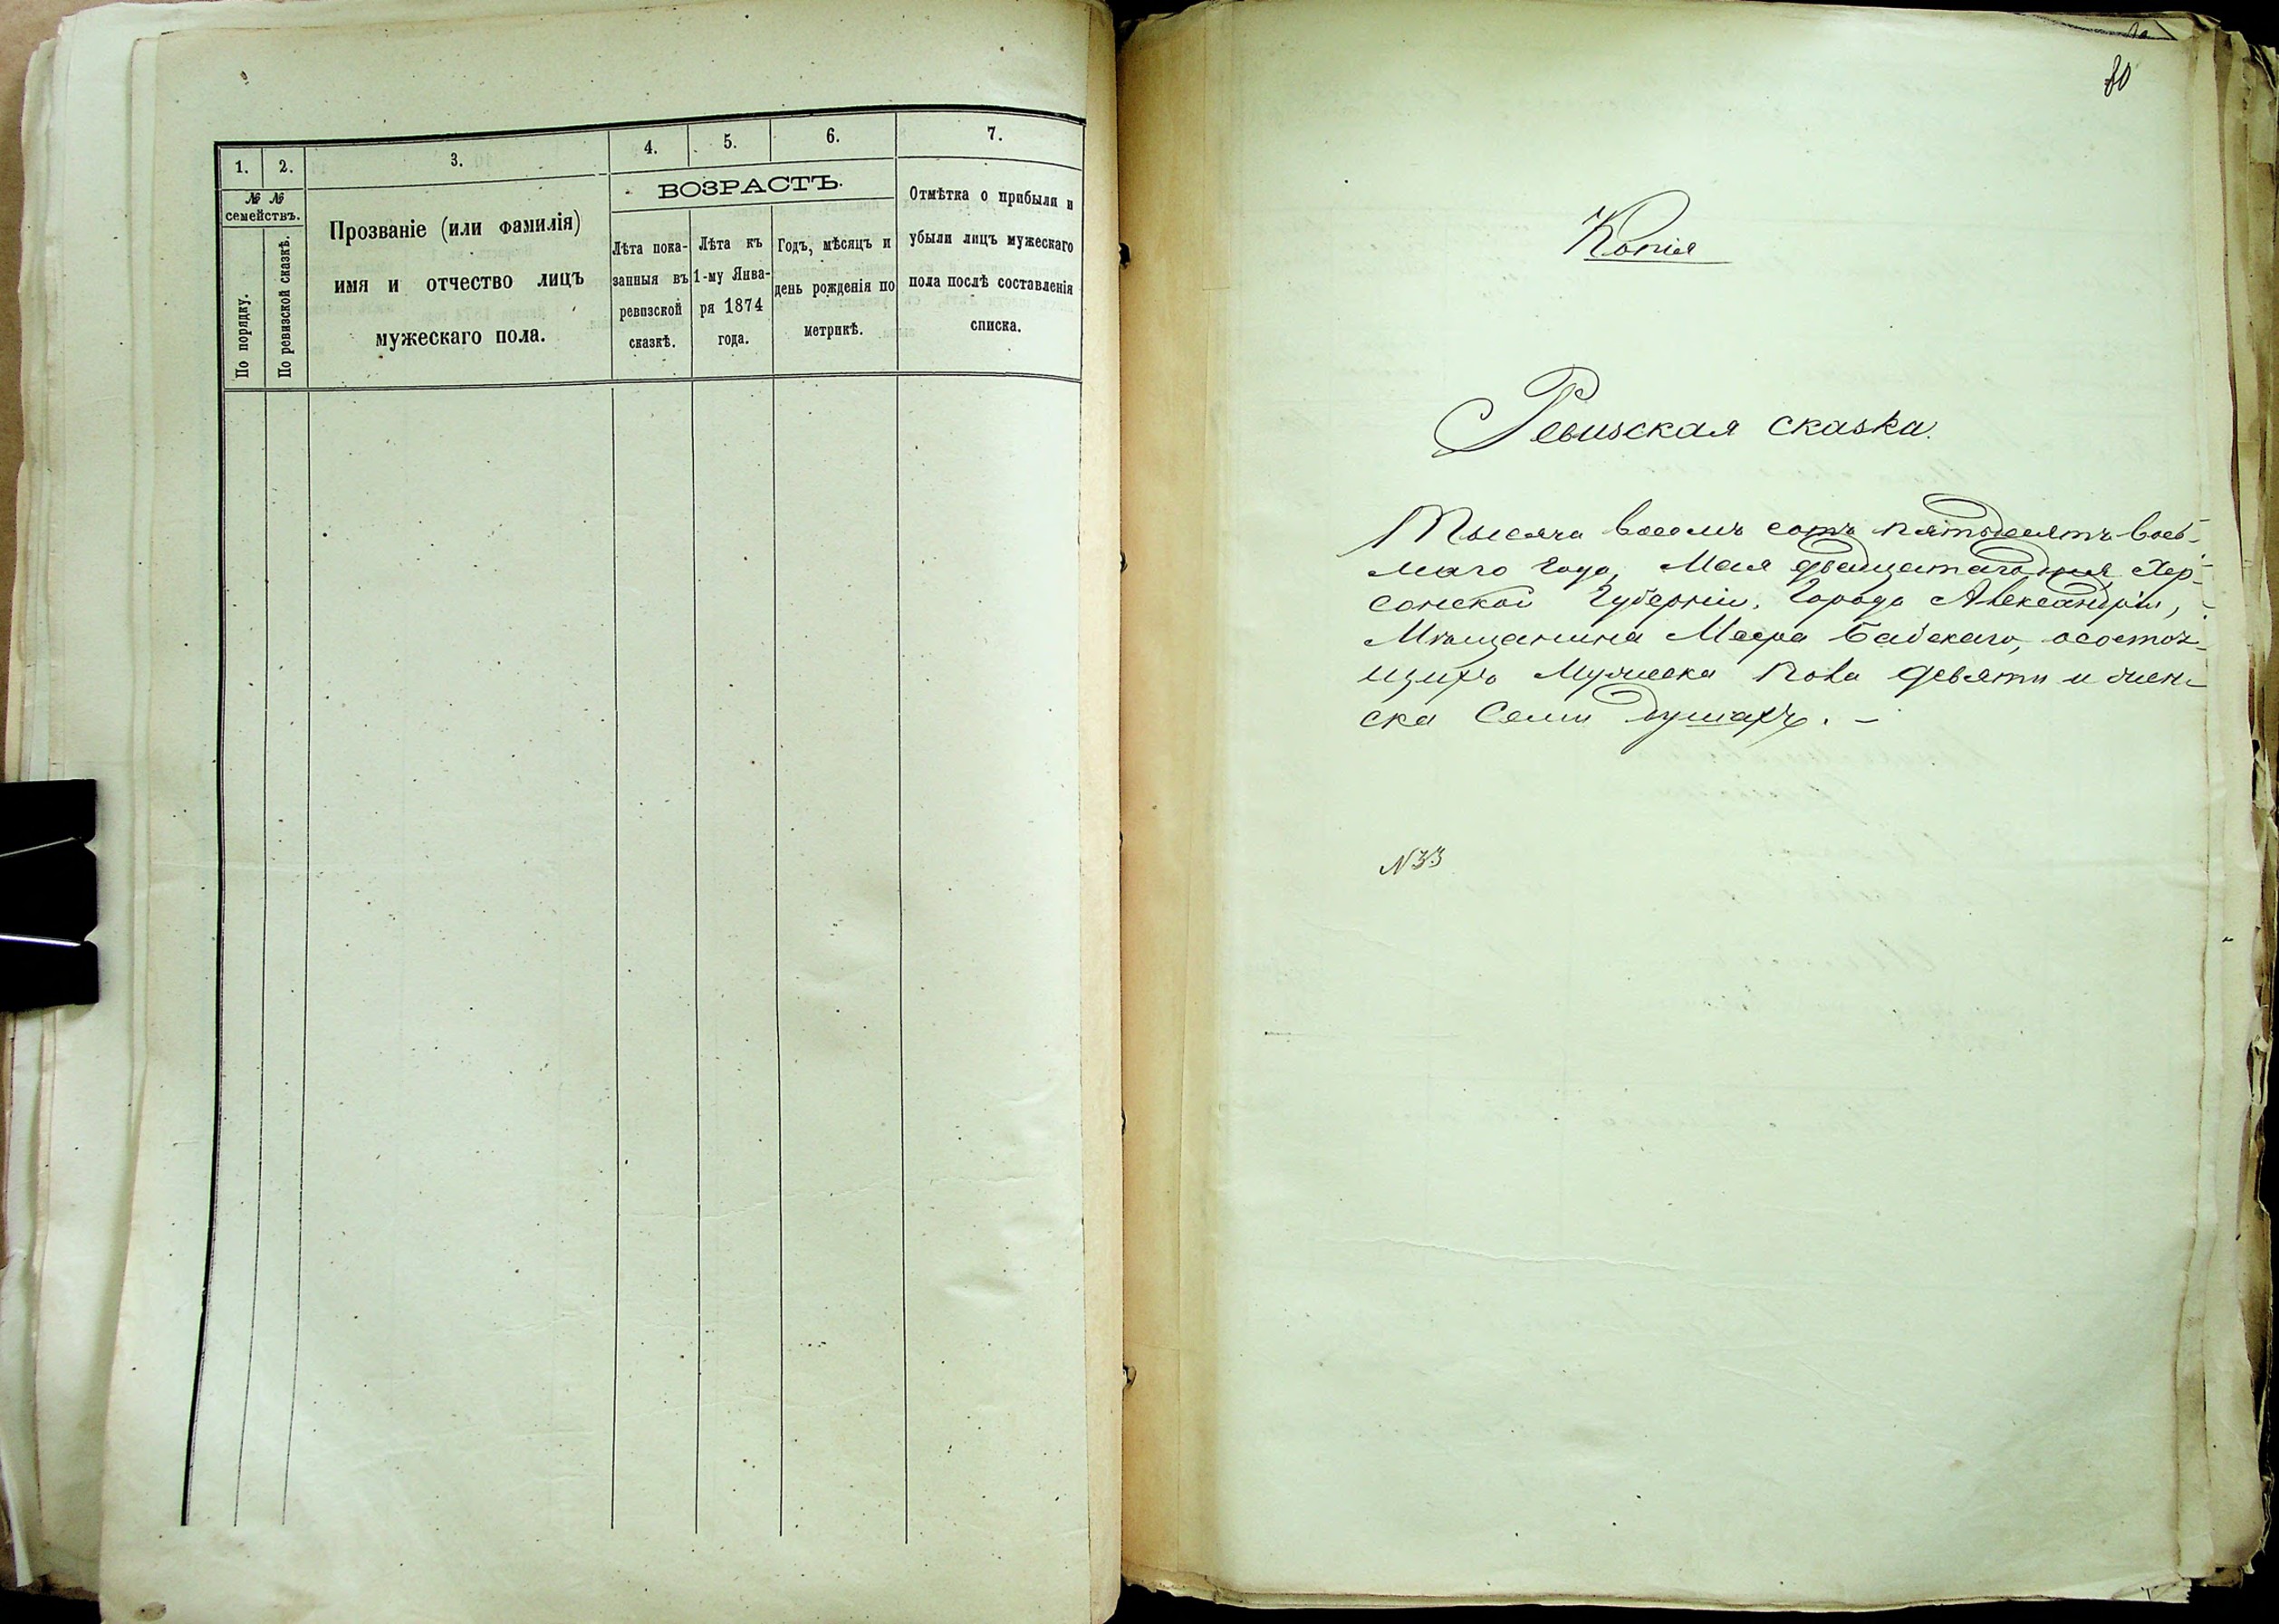 1.
2.
3.
4.
5.
6.
7.
№ № семействъ.
По порядку.
По ревизской сказкѣ.
Прозваніе (или фамилія)
имя и отчество лицъ
мужескаго пола.
ВОЗРАСТЪ.
Лѣта пока-
занныя въ
ревизской
сказкѣ.
Лѣта къ
1-му Янва-
ря 1874
года.
Годъ, мѣсяцъ и
день рожденія по
метрикѣ.
Отмѣтка о прибыли и
убыли лицъ мужескаго
пола послѣ составленія
списка.
80
Копія
Ревизская сказка.
Тысяча восемь сотъ пятьдесятъ вось-
маго года, Мая двадцатаго дня, Хер-
сонской Губерніи, Города Александріи,
Мѣщанина Меера Бабскаго, о состоя-
щихъ Мужеска пола девяти и жен-
ска Семи душахъ. –
N 33